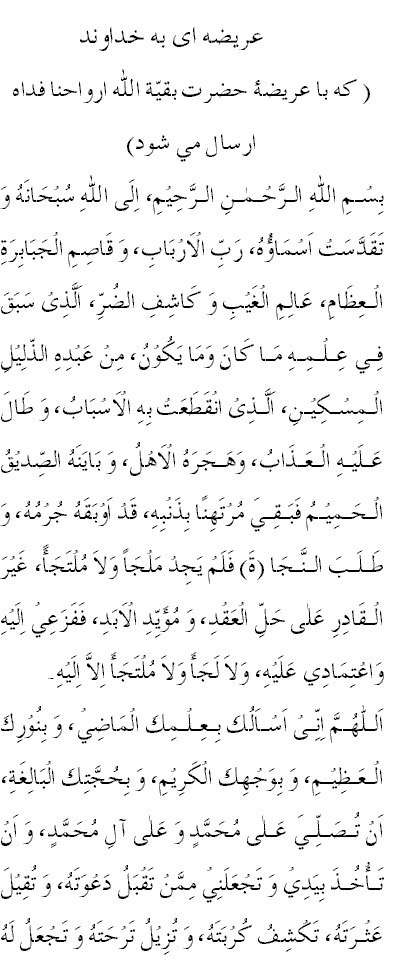 عریضه ای به خداوند
( که با عریضهٔ حضرت بقیّة الله ارواحنا فداه
ارسال مي شود)
بِسْمِ اللهِ الرَّحْمٰنِ الرَّحِيْمِ، اِلَى اللهِ سُبْحَانَهُ وَ
تَقَدَّسَتْ اَسْمَاؤُهُ، رَبِّ الْاَرْبَابِ، وَ قَاصِمِ الْجَبَابِرَةِ
الْعِظَامِ، عَالِمِ الْغَيْبِ وَ كَاشِفِ الضُّرِّ، اَلَّذِيْ سَبَقَ
فِي عِلْمِهِ مَا كَانَ وَمَا يَكُوْنُ، مِنْ عَبْدِهِ الذَّلِيْلِ
الْمِسْكِيْنِ، اَلَّذِيْ انْقَطَعَتْ بِهِ الْاَسْبَابُ، وَ طَالَ
عَلَيْهِ الْعَذَابُ، وَهَجَرَهُ الْاَهْلُ، وَ بَايَنَهُ الصِّدِيْقُ
الْحَمِيْمُ فَبَقِيَ مُرْتَهِنًا بِذَنْبِهِ، قَدْ اَوْبَقَهُ جُرْمُهُ، وَ
طَلَبَ النَّجَا (ةَ) فَلَمْ يَجِدْ مَلْجَأً وَلاَ مُلْتَجَأً، غَيْرَ
الْقَادِرِ عَلٰى حَلِّ الْعَقْدِ، وَ مُؤَيِّدِ الْاَبَدِ، فَفَزَعِيْ اِلَيْهِ
وَاعْتِمَادِي عَلَيْهِ، وَلاَ لَجَأَ وَلاَ مُلْتَجَأَ اِلاَّ اِلَيْهِ.
اَللّٰهُمَّ اِنِّيْ اَسْاَلُكَ بِعِلْمِكَ الْمَاضِيْ، وَ بِنُوْرِكَ
الْعَظِيْمِ، وَ بِوَجْهِكَ الْكَرِيْمِ، وَ بِحُجَّتِكَ الْبَالِغَةِ،
اَنْ تُصَلِّيَ عَلٰى مُحَمَّدٍ وَ عَلٰى آلِ مُحَمَّدٍ، وَ اَنْ
تَأْخُذَ بِيَدِيْ وَ تَجْعَلَنِيْ مِمَّنْ تَقْبَلُ دَعْوَتَهُ، وَ تُقِيْلَ
عَثْرَتَهُ، تَكْشِفُ كُرْبَتَهُ، وَ تُزِيْلُ تَرْحَتَهُ وَ تَجْعَلُ لَهُ